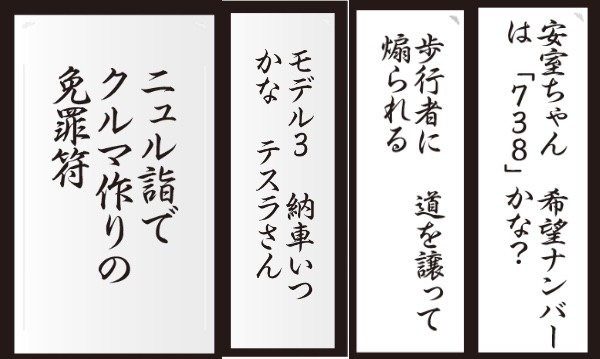 安室ちゃん 希望ナンバー
は 「738」かな?
歩行者に 道を譲って
煽られる
モデル3 納車いつ
かな テスラさん
ニュル詣で
クルマ作りの
免罪符